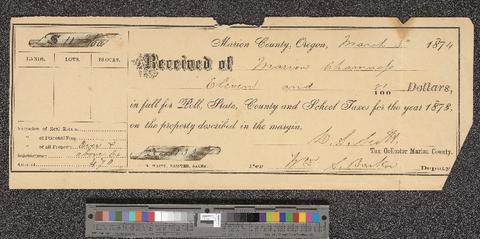 Marion County, Oregon, March 5 1874
LANDS. LOTS. BLOCKS.
Received of Marion
Eleven and /100 Dollars,
in full for Poll, State, County and School Taxes for the year 1873,
on the property described in the margin.
Valuation of Real Estate
" of Personal Prop.
" of all Property
Indebtedness above Ex
Amount
Tax Collector Marion County.
Per Wm S. Barker Deputy
E. M. WAITE, PRINTER, SALEM.